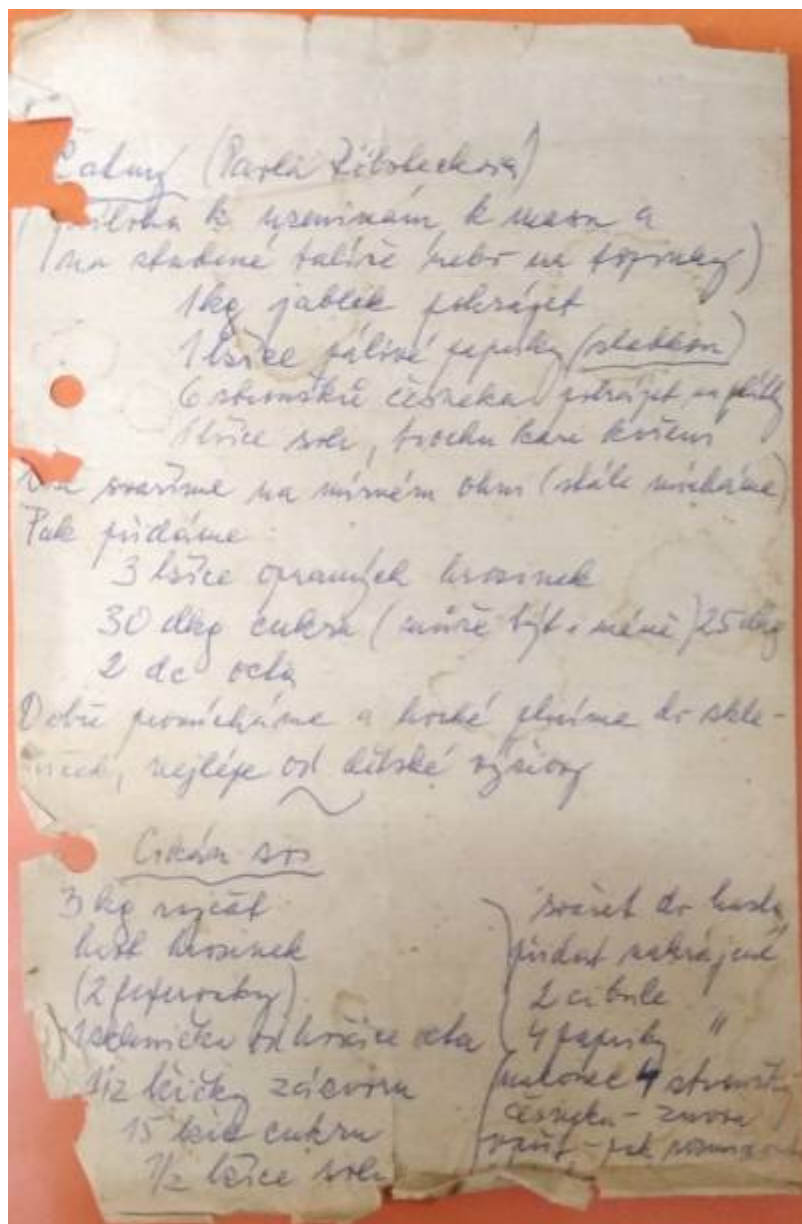 Čatný (Pavla
příloha k uzeninám, k masu a
na studené talíře nebo na topinky)
1 kg jablek pokrájet
1 lžíce pálivé papriky (sladkou)
6 stroužků česneka pokrájet na plátky
1 lžíce soli, trochu kari koření
svaříme na mírném ohni (stále mícháme)
Pak přidáme:
3 lžíce opraných hrozinek
30 dkg cukru (může být i méně) 25 dkg
2 dc octa
Dobře promícháme a horké plníme do skle-
niček, nejlépe od dětské výživy
Cikán sos
3 kg rajčat
hrst hrozinek
(2 feferonky)
1 sklenička od hořčice octa
1/2 lžičky zázvoru
15 lžic cukru
1/2 lžíce soli
svařit do husta
přidat nakrájené
2 cibule
4 papriky "
nakonec 4 stroužky
česneku - znovu
vařit - pak